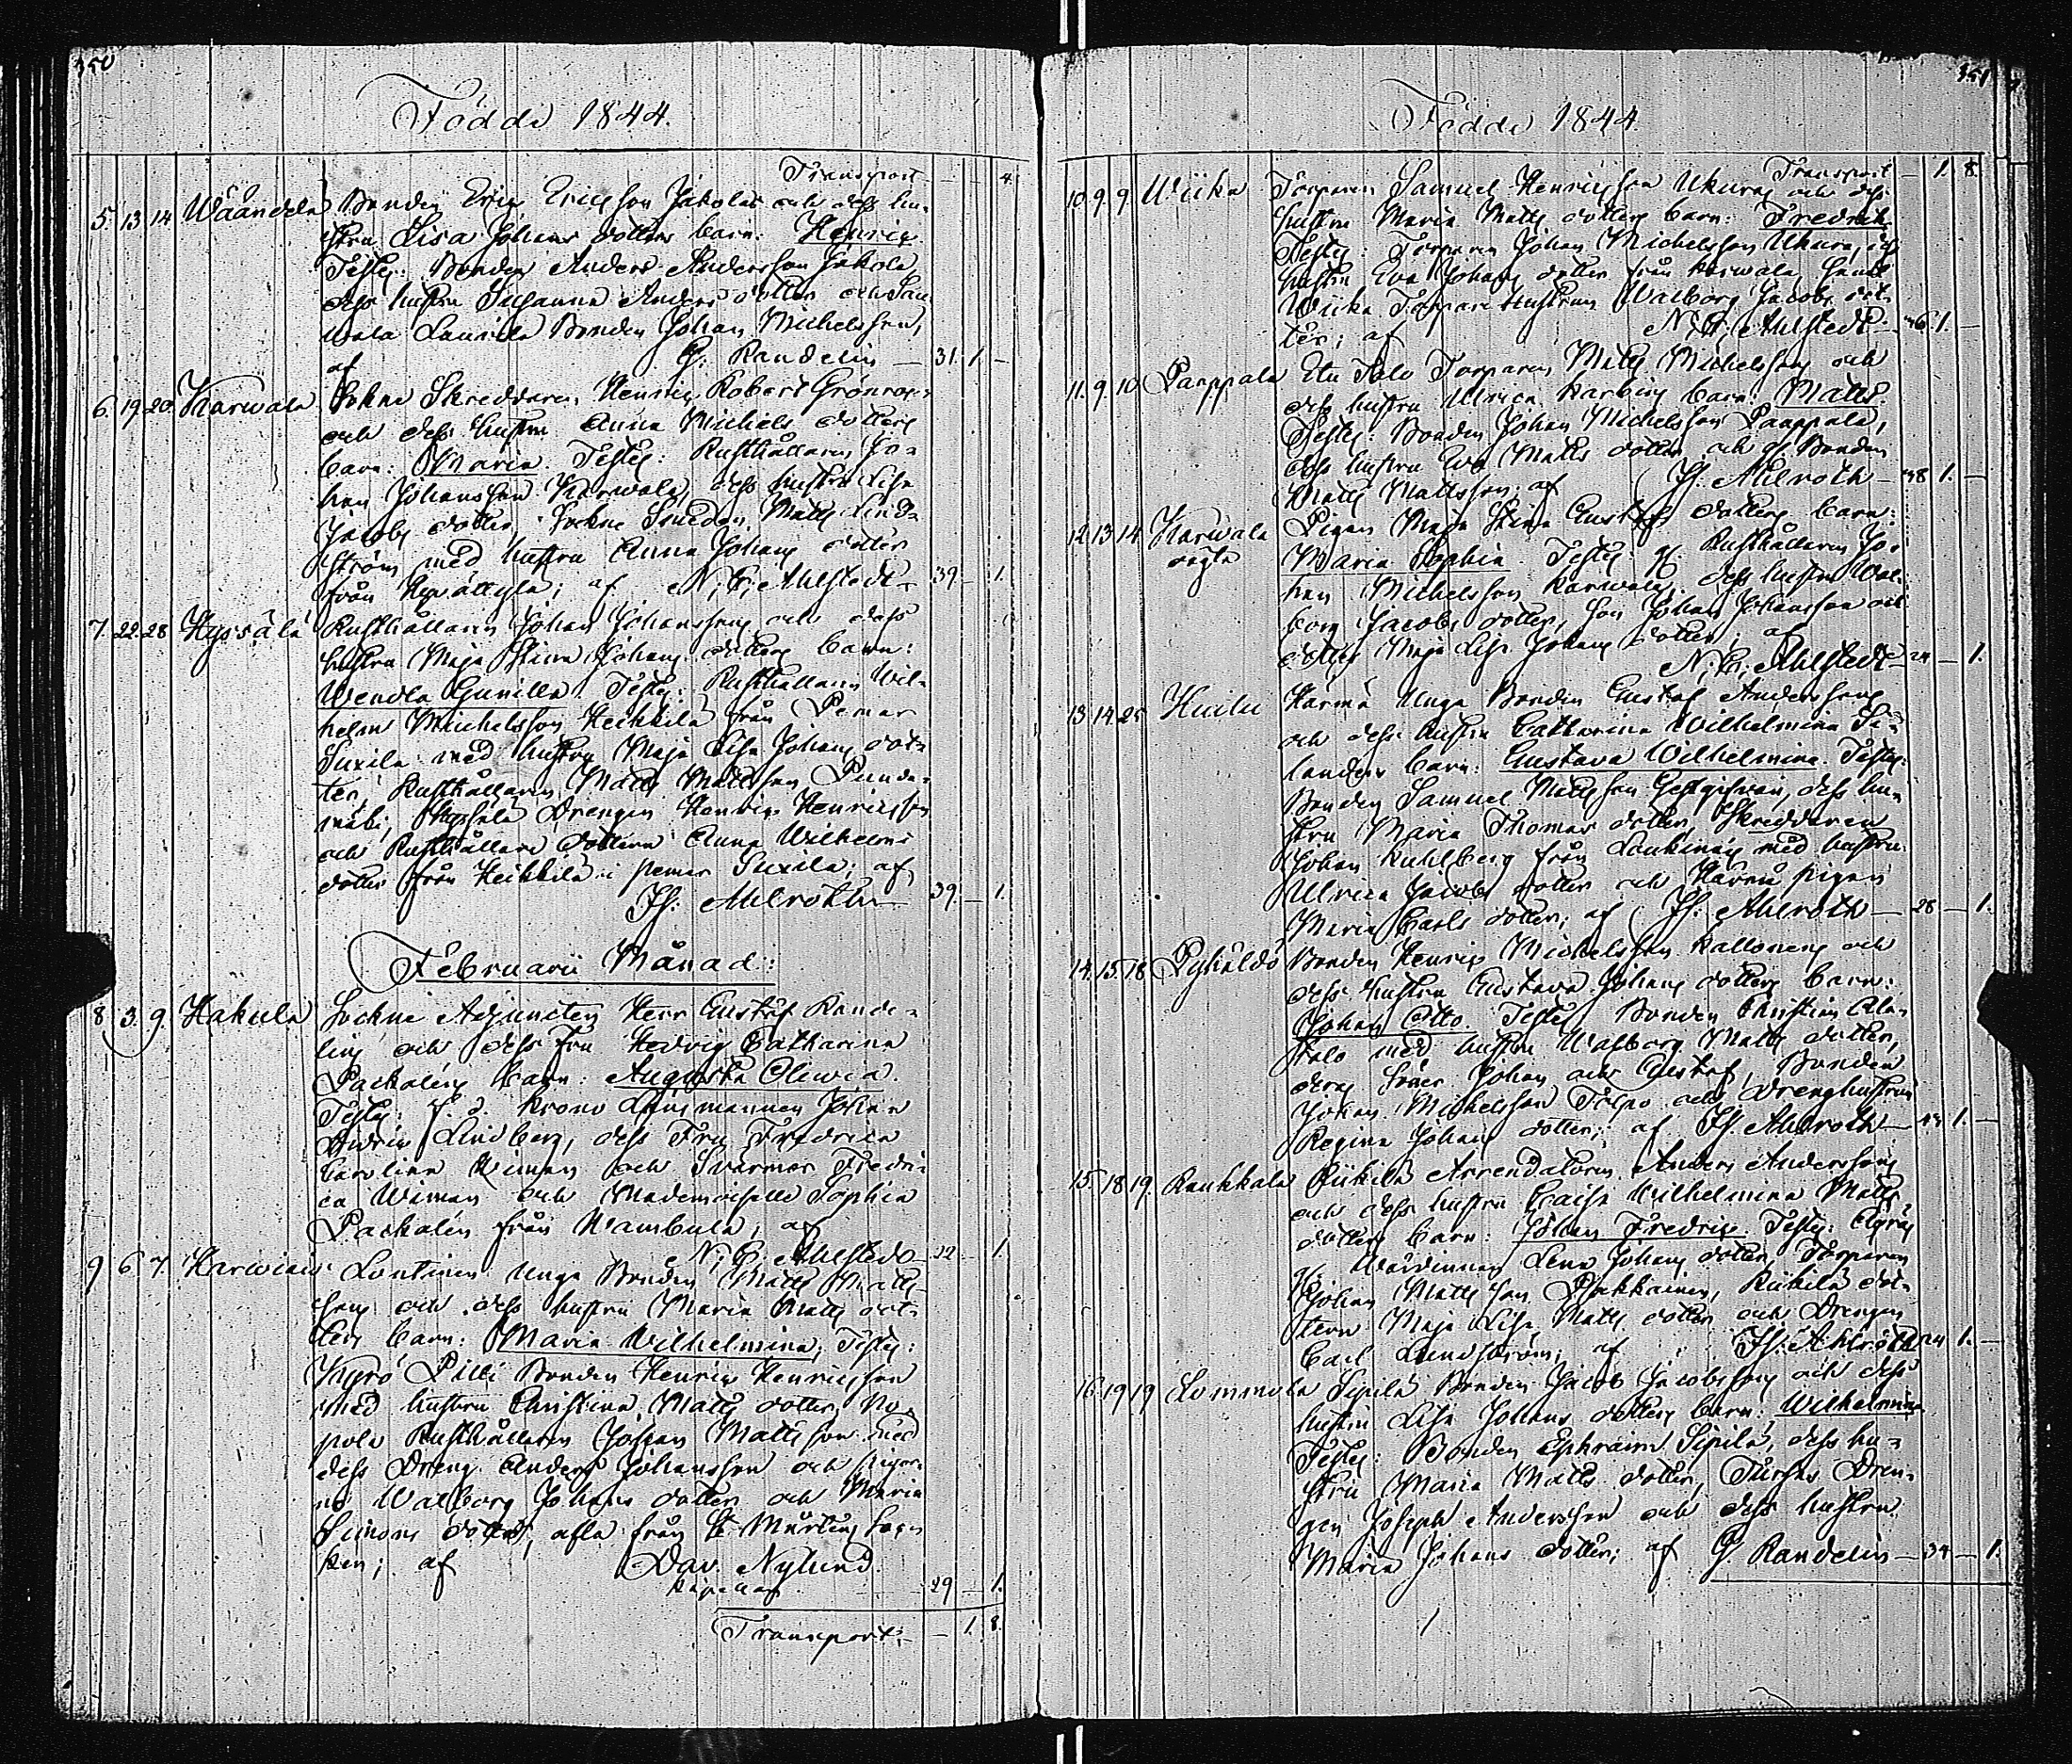 350
Födde 1844.
Transport — — 4.
5. 13. 14. Wäändelä Bonden Eric Ericsson Jakolas och dess hu-
stru Lisa Johans dotters barn: Henric.
Testes: Bonden Anders Andersson Jakola,
dess hustru Susanna Anders dotter och
Laurila Bonden Johan Michelsson,
af G. Randelin — 31. 1. —
6. 19. 20. Karwala Sokne Skreddaren Henric Robert Grönroos
och dess hustru Anna Michels dotters
barn: Maria. Testes: Rusthållaren Jo-
han Johansson Karwala, dess hustru Lisa
Jacobs dotter, Sockne Smeden Matts Lind-
ström med hustru Anna Johans dotter
från; af N. G. Ahlstedt — 39. — 1.
7. 22. 28. Hypsälä Rusthållaren Johan Johanssons och dess
hustru Maja Stina Johans dotters barn:
Wendla Gunilla. Testes: Rusthållaren Wil-
helm Michelsson Heikkilä från Pemar
Suxila med hustru Maja Lisa Johans dot-
ter, Rusthållaren Matts Mattsson
Drengen Henric Henricsson
och Rusthållare dottern Anna Wilhelms
dotter från Heikkilä i Pemar Suxila; af
Is: Ahlroth — 39. — 1.
Februarii Månad:
8. 3. 9. Hakula Sockne Adjuncten Herr Gustaf Rande-
lins och dess Fru Hedvig Catharina
Packaléns barn: Augusta Oliwia.
Testes: t. f. Krono Länsmannen Johan
Lindberg, dess Fru Fredrica
Carolina Wiman och Svärmor Fredri-
ca Wiman och Mademoiselle Sophia
Packalén från Wambula; af
N. G. Ahlstedt — 32. — 1.
9. 6. 7. Harwiais Lontinen Unga Bonden Matts Matts-
sons och dess hustru Maria Matts dot-
ters barn: Maria Wilhelmina; Testes:
Pilli Bonden Henric Henricsson
med hustru Christina Matts dotter, No-
pola Rusthållaren Johan Mattsson med
dess Dreng Anders Johansson och pigor-
na Walborg Johans dotter och Maria
Simons dotter, alla från St Mårtens Soc-
ken; af Dav. Nylund.
Kapellan — 29 — 1.
Transport: — 1. 8.
351
Födde 1844.
Transport — 1. 8.
10. 9. 9. Wiika Torparen Samuel Henricsson Ukuras och dess
hustru Maria Matts dotters barn: Fredrik.
Testes: Torparen Johan Michelsson Ukura,
hustru Eva Johans dotter från Karwala, samt
Wiika Torpare Hustrun Walborg Jacobs dot-
ter; af N. G. Ahlstedt — 46. 1. —
11. 9. 10. Paappala Torparen Matts Michelssons och
dess hustru Ulrica Karbins barn: Matts.
Testes: Bonden Johan Michelsson Paappala,
dess hustru Eva Matts dotter och g. Bonden
Matts Mattsson; af Is: Ahlroth — 48 1. —
12. 13. 14. Karwala Pigan Maja Stina Gustafs dotters barn:
oägta Maria Sophia. Testes: Rusthållaren Jo-
han Michelsson Karwala, dess hustru Wal-
borg Jacobs dotter, Son Johan Johansson och
dotter Maja Lisa Johans dotter; af
N. G. Ahlstedt — 24 — 1.
13. 14. 25. Huilu Härmä Unga Bonden Gustaf Anderssons
och dess hustru Catharina Wilhelmina
landers barn: Gustava Wilhelmina. Testes:
Bonden Samuel Mattsson, dess hu-
stru Maria Thomas dotter, Skreddaren
Johan Kuhlberg från Loukinais med hustru
Ulrica Jacobs dotter och Härmä pigan
Maria Carls dotter; af Is: Ahlroth — 28 — 1.
14. 15. 18. Pyhäldö Bonden Henric Michelsson Kallonens och
dess hustru Gustava Johans dotters barn:
Johan Otto. Testes: Bonden Christian Ala-
talo med hustru Walborg Matts dotter,
deras Söner Johan och Gustaf, Bonden
Johan Michelsson Torpo och Drenghustrun
Regina Johans dotter; af Is: Ahlroth — 1. —
15. 18. 19. Raukkala Riikilä Arrendatoren Anders Anderssons
och dess hustru Caisa Wilhelmina Matts
dotters barn: Johan Fredric. Testes:
Wärdinnan Lena Johans dotter, Torparen
Johan Mattsson, Riikilä dot-
tern Maja Lisa Matts dotter och Drengen
Carl Lundström; af Is: Ahlroth 24 1. —
16. 19. 19. Lommola Sipilä Bonden Jacob Jacobssons och dess
hustru Lisa Johans dotters barn: Wilhelmina
Testes: Bonden Ephraim Sipilä, dess hu-
stru Maria Matts dotter, Dren-
gen Joseph Andersson och dess hustru
Maria Johans dotter; af G. Randelin — 34 — 1.